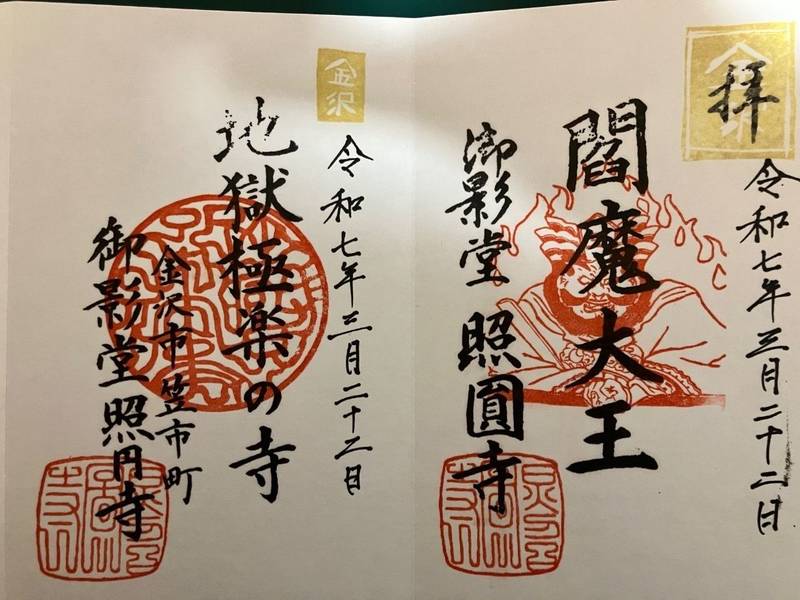 拝
令和七年三月二十二日
閻魔大王
御影堂 照圓寺
金沢
令和七年三月二十二日
地獄極楽の寺
金沢市笠市町
御影堂照円寺